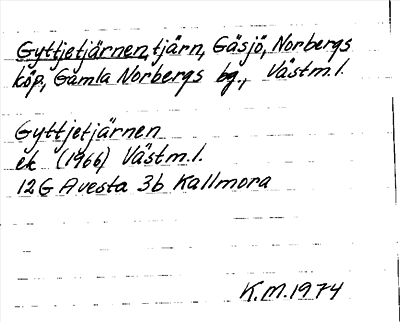 Gyttjetjärnen, tjärn, Gäsjö, Norbergs
köp, Gamla Norbergs bg., Västm.l.
Gyttjetjärnen
ek (1966) Västm.l.
12G Avesta 3b Kallmora
K.M.1974